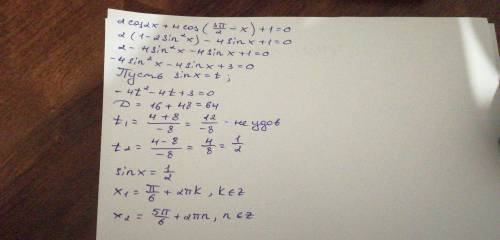 2 cos2x + 4 cos (3π/2 - x) + 1 = 0
2 (1 - 2 sin²x) - 4 sinx + 1 = 0
2 - 4 sin²x - 4 sinx + 1 = 0
-4 sin²x - 4 sinx + 3 = 0
Пусть sinx = t ;
-4t² - 4t + 3 = 0
D = 16 + 48 = 64
t₁ = (4 + 8)/(-8) = 12/(-8) - не удов
t₂ = (4 - 8)/(-8) = 4/8 = 1/2
sinx = 1/2
x₁ = π/6 + 2πk , k ∈ z
x₂ = 5π/6 + 2πn, n ∈ z